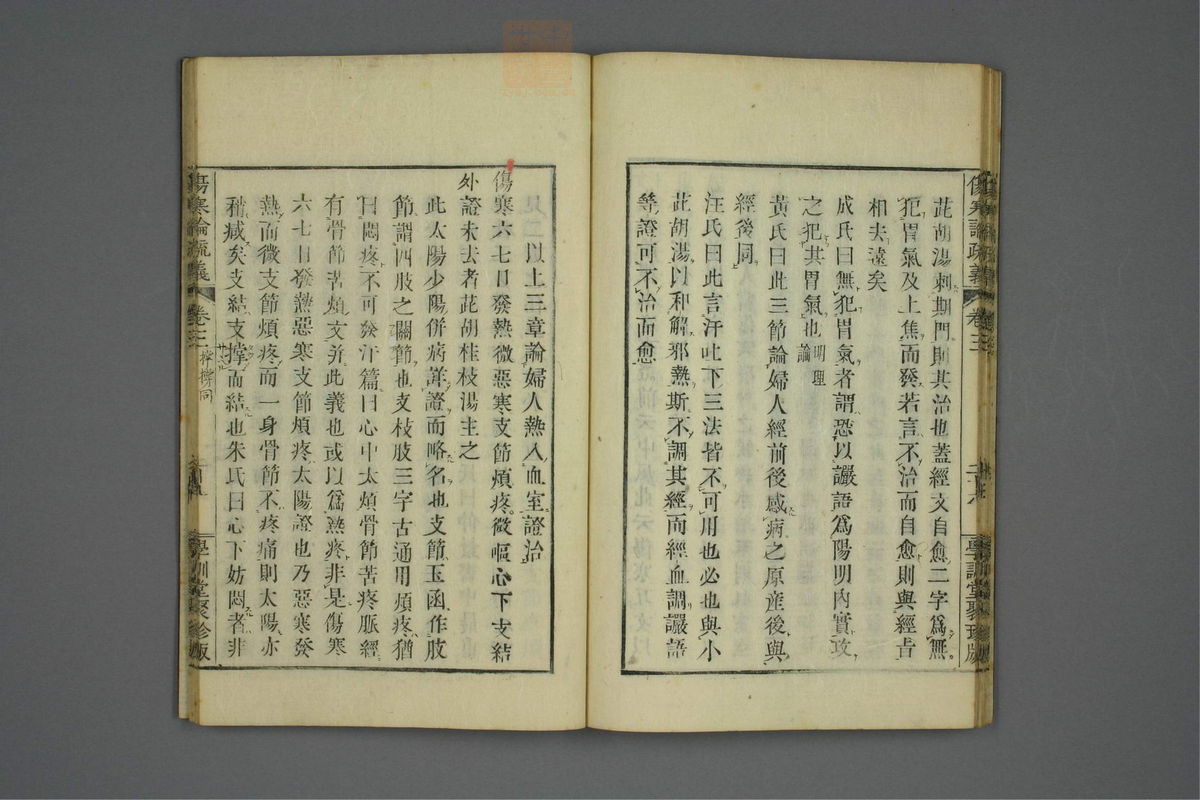 傷寒論疏義 卷三 學訓堂聚珍版
茈胡湯刺期門則其治也蓋經文自愈二字爲無
犯胃氣及上焦而發若言不治而自愈則與經旨
相去遠矣
成氏曰無犯胃氣者謂恐以讝語爲陽明內實攻
之犯其胃氣也明理論
黃氏曰此三節論婦人經前後感病之原產後與
經後同
汪氏曰此言汗吐下三法皆不可用也必也與小
茈胡湯以和解邪熱斯不調其經而經血調讝語
等證可不治而愈
以上三章論婦人熱入血室證治
傷寒六七日發熱微惡寒支節煩疼微嘔心下支結
外證未去者茈胡桂枝湯主之
此太陽少陽併病葬證而略名也支節玉函作肢
節謂四肢之關節也支枝肢三字古通用煩疼猶
曰悶疼不可發汗篇曰心中太煩骨節苦疼脈經
有骨節苦煩文并此義也或以爲熱疼非是傷寒
六七日發熱惡寒支節煩疼太陽證也乃惡寒發
熱而微支節煩疼而一身骨節不疼痛則太陽亦
稍減矣支結支撑而結也朱氏曰心下妨悶者非
傷寒論疏義 卷三 撑撐同 學訓堂聚珍版